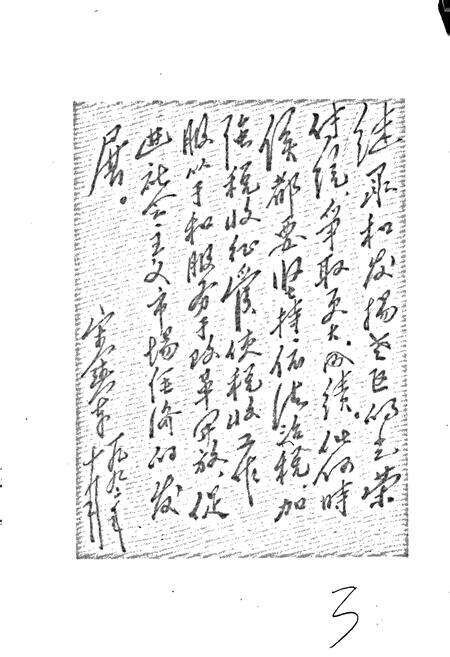 继承和发扬老区的光荣
传统,争取更大成绩。任何时
候都要坚持依法治税,加
强税收征管,使税收工作
服从于和服务于改革开放,促
进社会主义市场经济的发
展。
一九九二年
十月
3